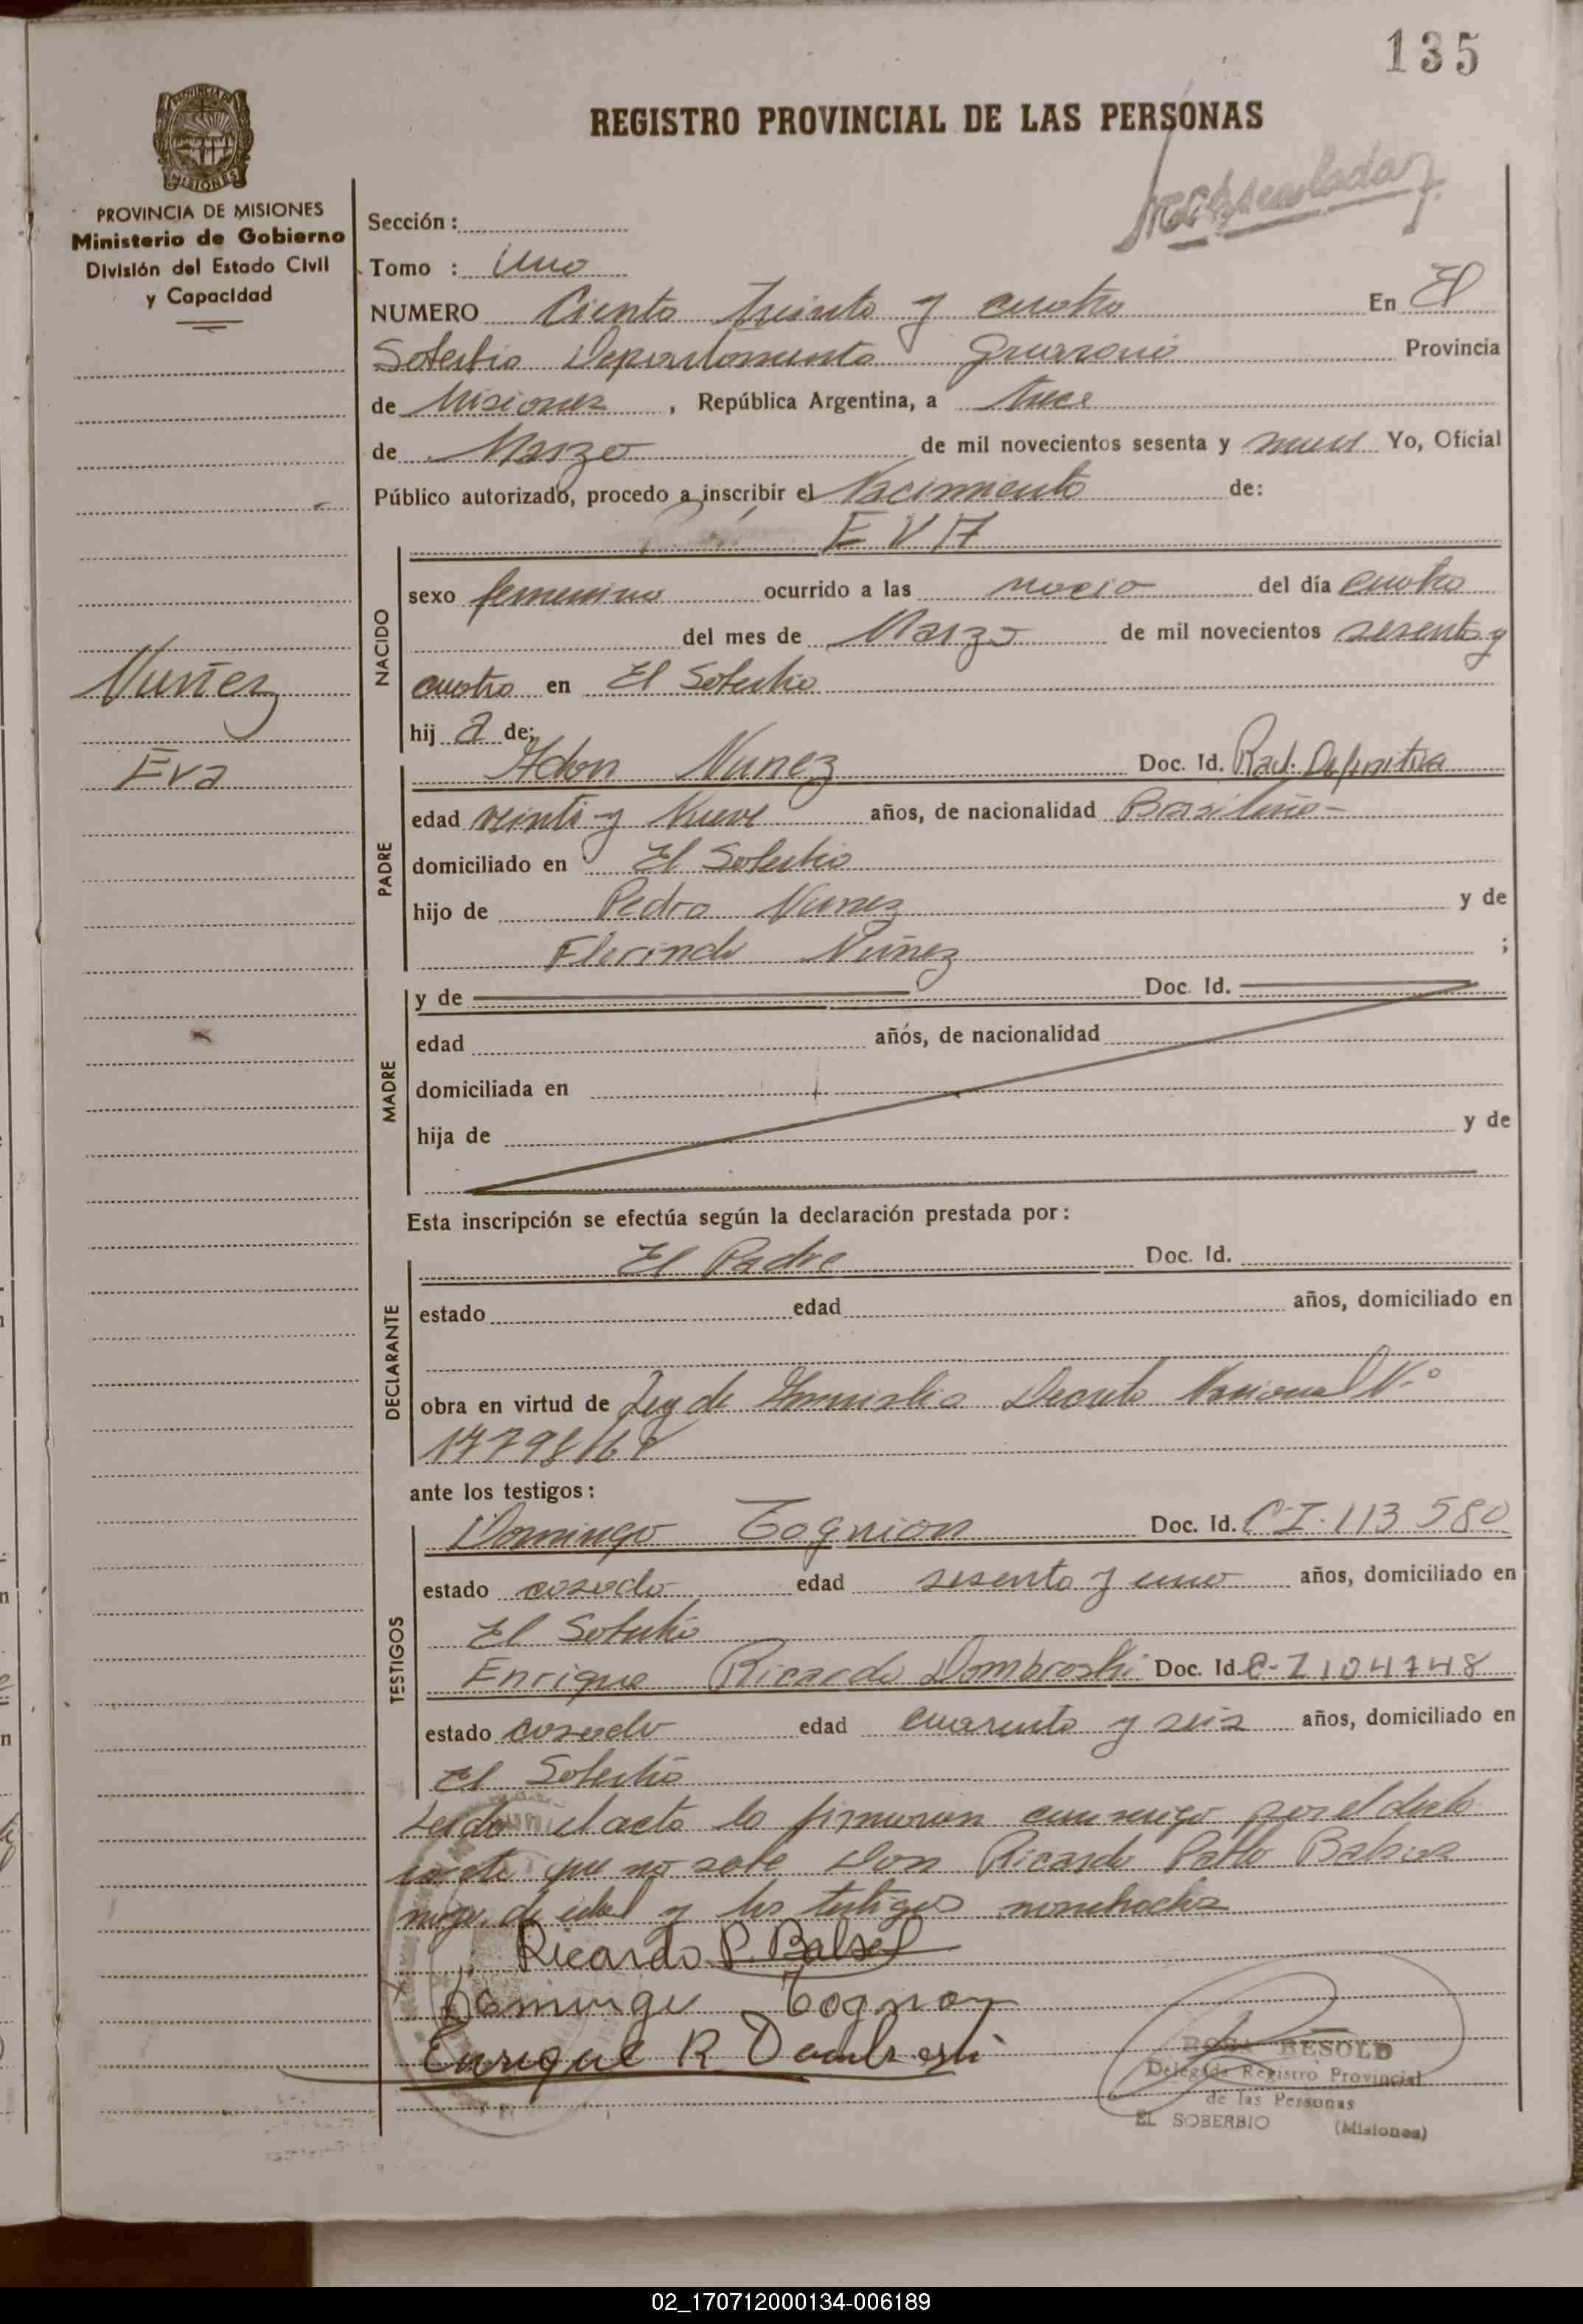 135
REGISTRO PROVINCIAL DE LAS PERSONAS
PROVINCIA DE MISIONES
Ministerio de Gobierno
División del Estado Civil
y Capacidad
Nuñez
Eva
Sección :
Tomo : Uno
NUMERO Ciento treinta y cuatro En El
Soberbio Departamento Guarani Provincia
de Misiones , República Argentina, a trece
de Marzo de mil novecientos sesenta y nueve Yo, Oficial
Público autorizado, procedo a inscribir el Nacimiento de:
EVA
NACIDO
sexo femenino ocurrido a las del día cuatro
del mes de Marzo de mil novecientos sesenta y
cuatro en El Soberbio
hij a de:
PADRE
Adon Nunez Doc. Id. Rad. Definitiva
edad veinti y Nueve años, de nacionalidad Brasileño
domiciliado en El Soberbio
hijo de Pedro Nunez y de
Florinda Núnez ;
MADRE
y de Doc. Id.
edad años, de nacionalidad
domiciliada en
hija de y de
Esta inscripción se efectúa según la declaración prestada por:
DECLARANTE
El Padre Doc. Id.
estado edad años, domiciliado en
obra en virtud de Ley de Amnistia Decreto Nacional N.º
ante los testigos:
TESTIGOS
Domingo Tognion Doc. Id. C-I-113 580
estado casado edad sesenta y uno años, domiciliado en
El Soberbio
Enrique Ricardo Dombroski Doc. Id. C-I 104748
estado casado edad cuarenta y seis años, domiciliado en
El Soberbio
Leido el acta la firmaron conmigo por el decla
rante que no sabe Don Ricardo Pablo
de edad y los testigos
Ricardo P. Balsel
Domingo Tognon
Enrique R
ROSA BESOLD
Delegada Registro Provincial
de las Personas
EL SOBERBIO (Misiones)
02_170712000134-006189